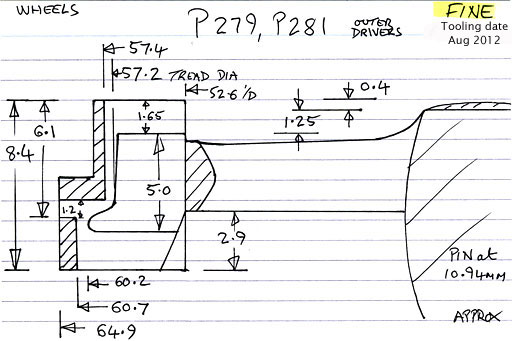 WHEELS
P279, P281 OUTER DRIVERS
FINE
Tooling date
Aug 2012
57.4
57.2 TREAD DIA
52.6 I/D
0.4
1.65
1.25
6.1
8.4
5.0
1.2
2.9
PIN at
10.94MM
60.2
60.7
64.9
APPROX